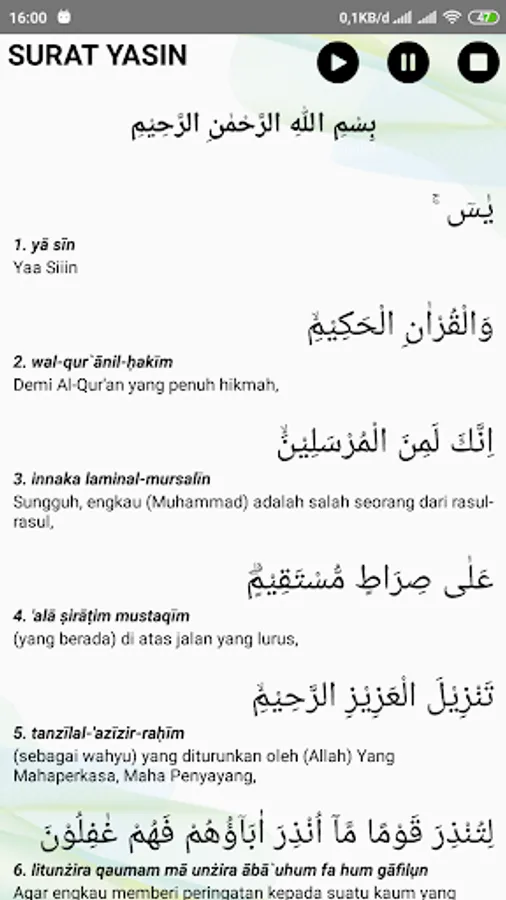 16:00 0,1KB/d 47
SURAT YASIN
بِسْمِ اللّٰهِ الرَّحْمٰنِ الرَّحِيْمِ
يٰسۤ ۚ
1. yā sīn
Yaa Siiin
وَالْقُرْاٰنِ الْحَكِيْمِۙ
2. wal-qur`ānil-ḥakīm
Demi Al-Qur'an yang penuh hikmah,
اِنَّكَ لَمِنَ الْمُرْسَلِيْنَۙ
3. innaka laminal-mursalīn
Sungguh, engkau (Muhammad) adalah salah seorang dari rasul-
rasul,
عَلٰى صِرَاطٍ مُّسْتَقِيْمٍۗ
4. 'alā ṣirāṭim mustaqīm
(yang berada) di atas jalan yang lurus,
تَنْزِيْلَ الْعَزِيْزِ الرَّحِيْمِۙ
5. tanzīlal-'azīzir-raḥīm
(sebagai wahyu) yang diturunkan oleh (Allah) Yang
Mahaperkasa, Maha Penyayang,
لِتُنْذِرَ قَوْمًا مَّآ اُنْذِرَ اٰبَاۤؤُهُمْ فَهُمْ غٰفِلُوْنَ
6. litunżira qaumam mā unżira ābā`uhum fa hum gāfilụn
Agar engkau memberi peringatan kepada suatu kaum yang